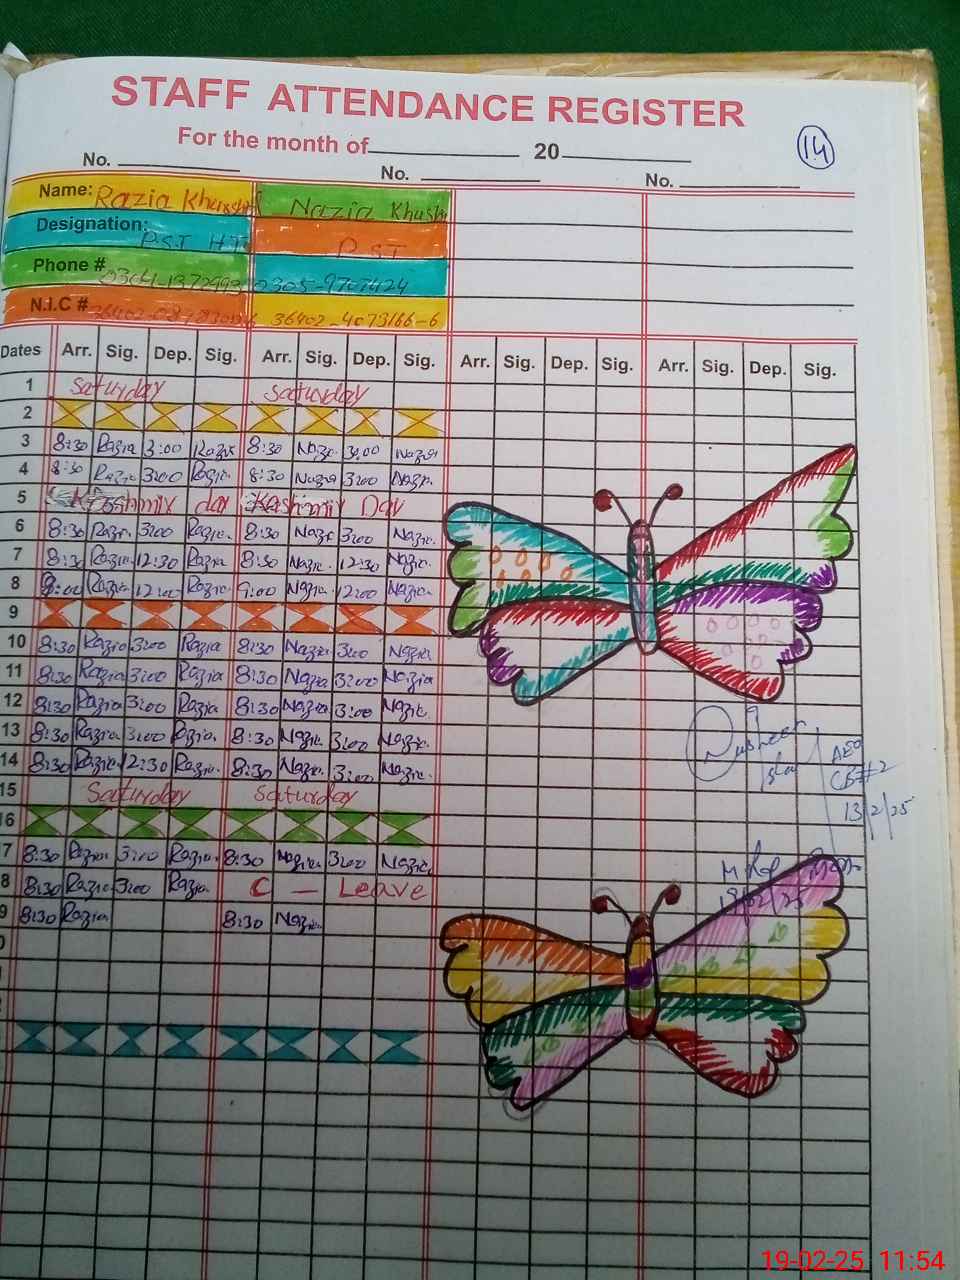 STAFF ATTENDANCE REGISTER
14
For the month of 20
No. No. No.
Name: Razia Khurshi Nazia Khush
Designation: P.S.T H.T P.S.T
Phone # 0304-1372993 0305-9707424
N.I.C # 36402-4073166-6
Dates Arr. Sig. Dep. Sig. Arr. Sig. Dep. Sig. Arr. Sig. Dep. Sig. Arr. Sig. Dep. Sig.
1 Saturday Saturday
2
3 8:30 Razia 3:00 Razia 8:30 Nazia 3:00 Nazia
4 8:30 Razia 3:00 Razia 8:30 Nazia 3:00 Nazia
5 Kashmir day Kashmir Day
6 8:30 Razia 3:00 Razia 8:30 Nazia 3:00 Nazia
7 8:30 Razia 12:30 Razia 8:30 Nazia 12:30 Nazia
8 9:00 Razia 12:00 Razia 9:00 Nazia 12:00 Nazia
9
10 8:30 Razia 3:00 Razia 8:30 Nazia 3:00 Nazia
11 8:30 Razia 3:00 Razia 8:30 Nazia 3:00 Nazia
12 8:30 Razia 3:00 Razia 8:30 Nazia 3:00 Nazia
13 8:30 Razia 3:00 Razia 8:30 Nazia 3:00 Nazia
14 8:30 Razia 12:30 Razia 8:30 Nazia 3:00 Nazia
15 Saturday Saturday
16
7 8:30 Razia 3:00 Razia 8:30 Nazia 3:00 Nazia
8 8:30 Razia 3:00 Razia C — Leave
9 8:30 Razia 8:30 Nazia
AEO
CB#2
13/2/25
19-02-25 11:54